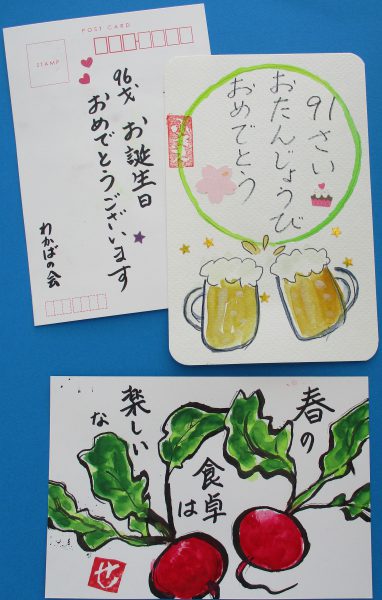 POST CARD
STAMP
96才 お誕生日
おめでとうございます
わかばの会
91さい
おたんじょうび
おめでとう
春の
食卓は
楽しいな
せ